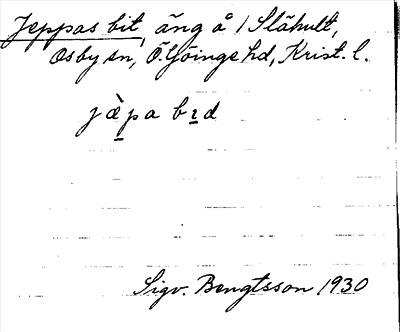 Jeppas bit, äng å 1 Slähult,
Osby sn, Ö. Göinge hd, Krist. l.
jæ̀pa bɪd
Sigv. Bengtsson 1930